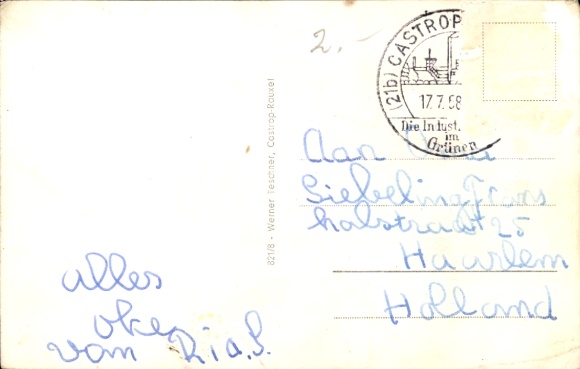 2.-
(21b) CASTROP
17.7.58
Die Indust.
im
Grünen
8217/8 - Werner Teschner, Castrop-Rauxel
Aan
Siebeling Frans
halstraat 25
Haarlem
Holland
alles
oke
van Ria.S.